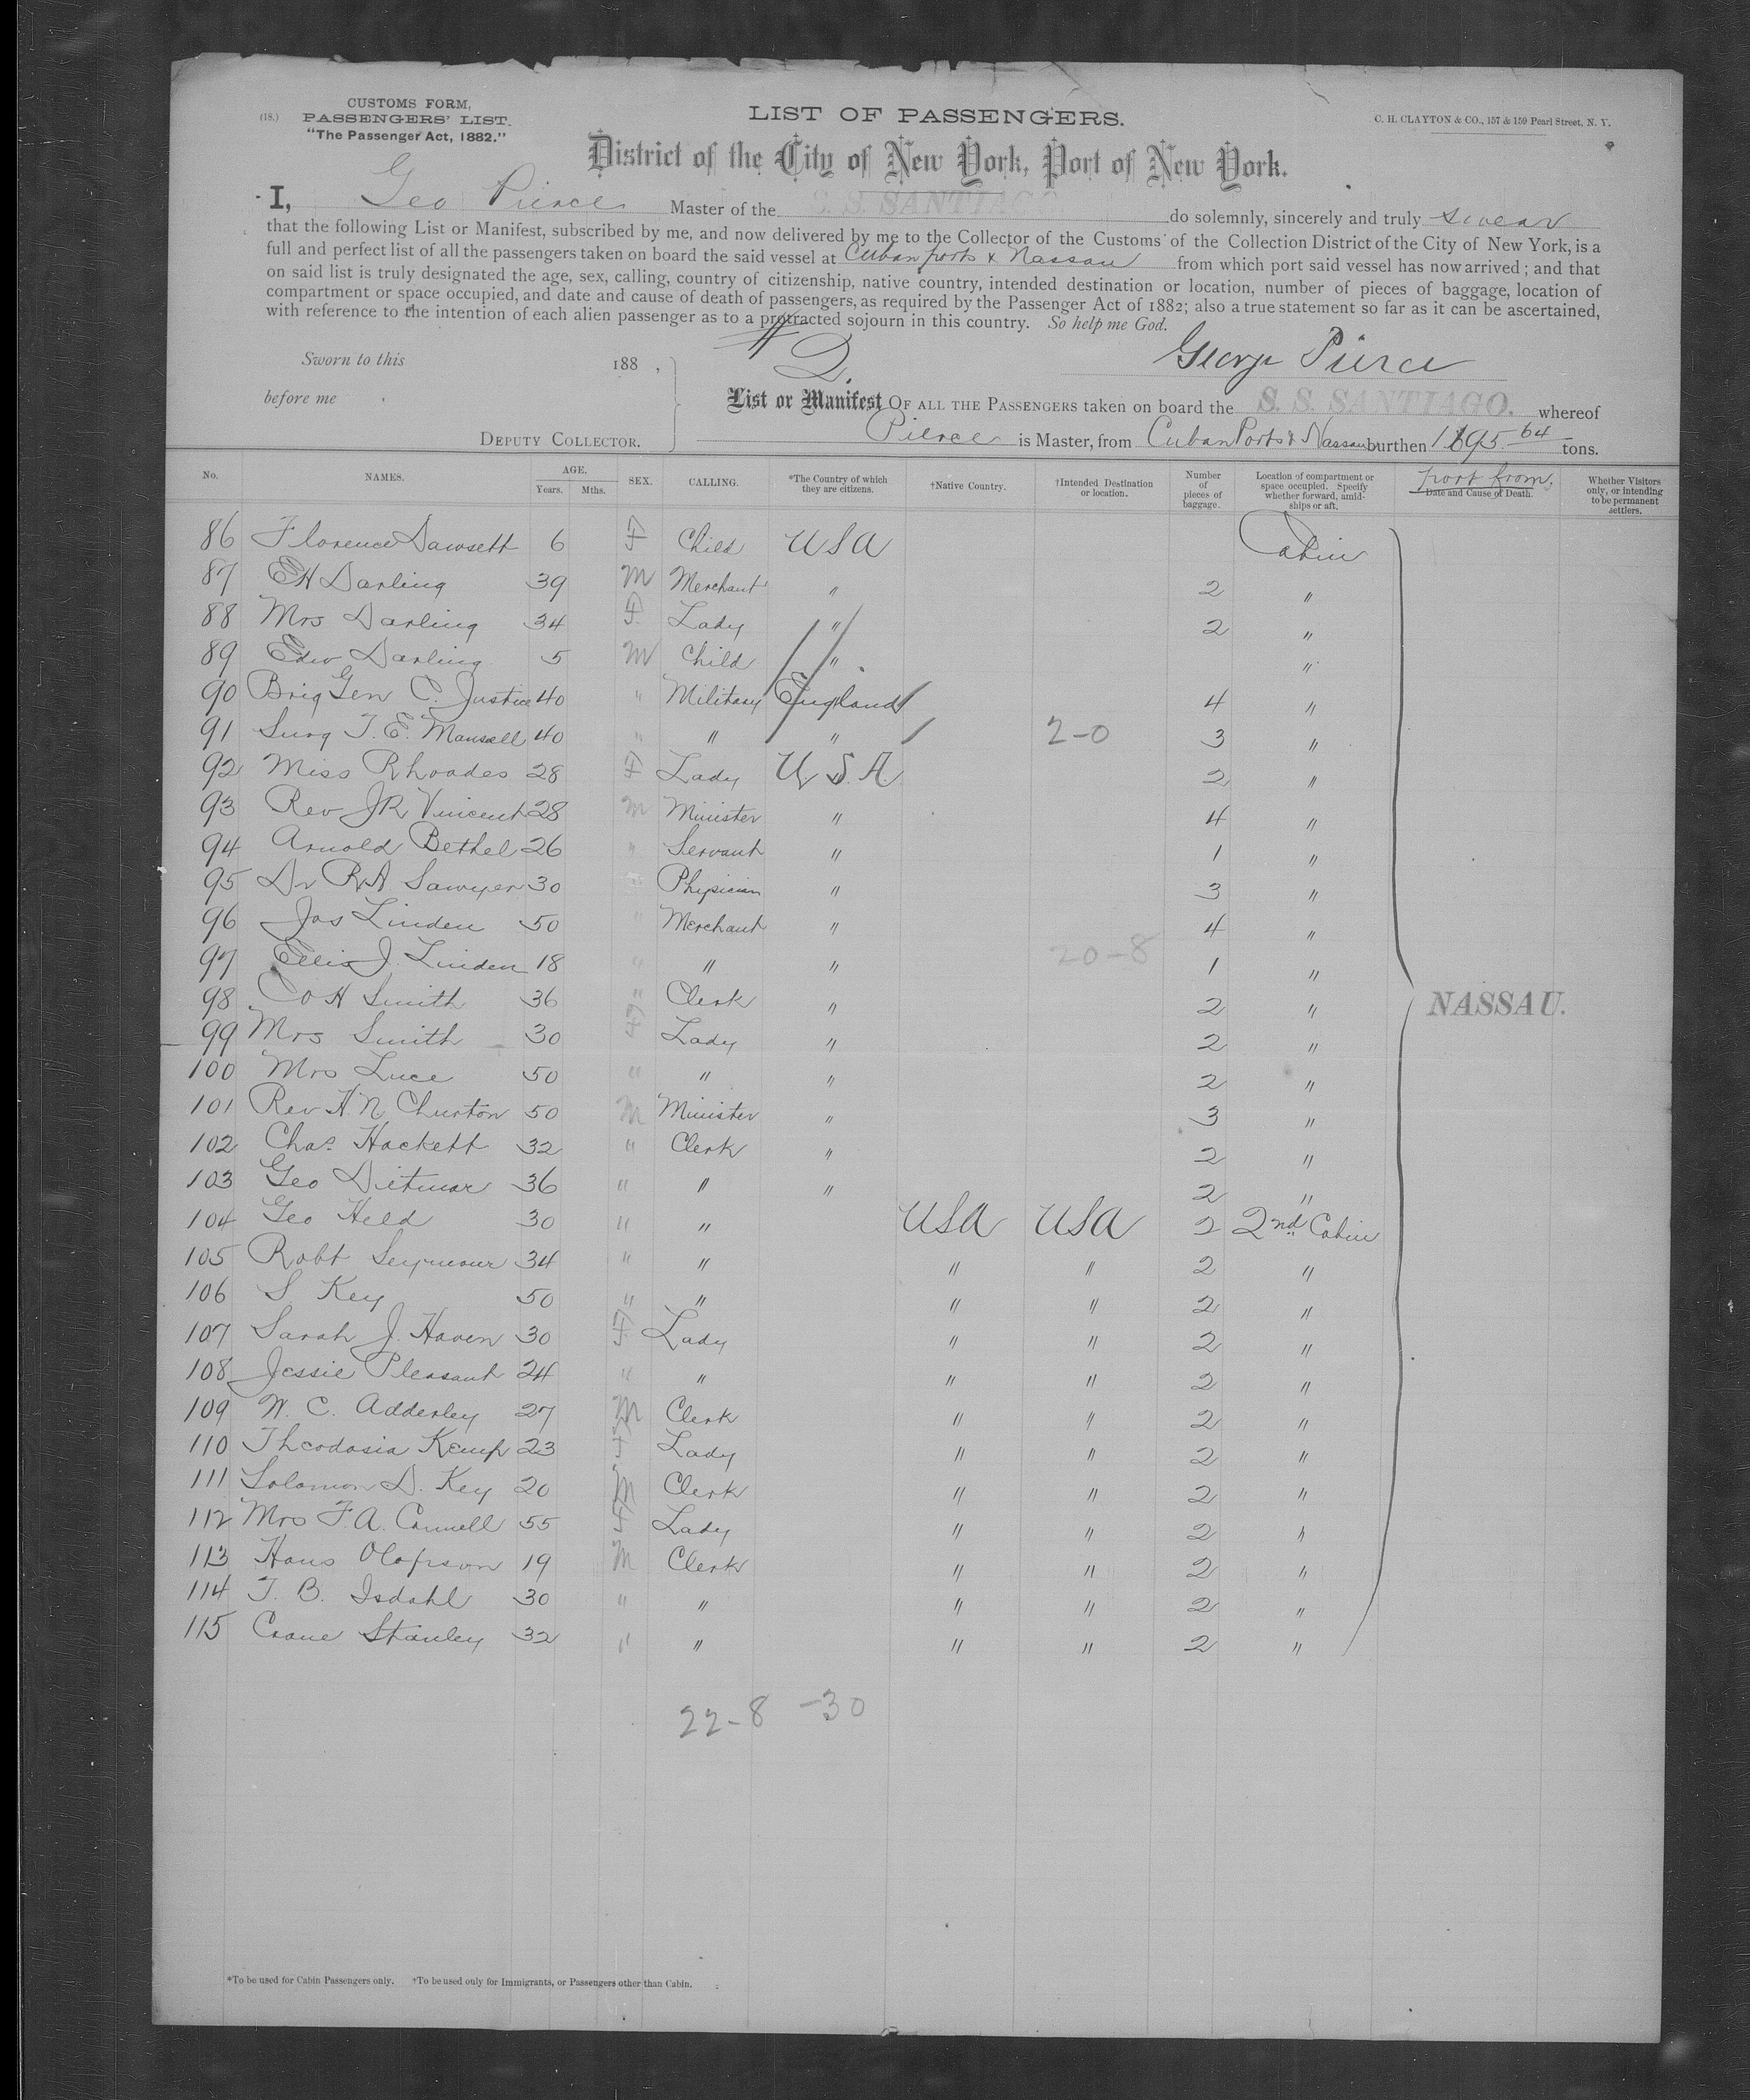 CUSTOMS FORM,
(18.) PASSENGERS' LIST.
"The Passenger Act, 1882."
LIST OF PASSENGERS.
C. H. CLAYTON & CO., 157 & 159 Pearl Street, N. Y.
District of the City of New York, Port of New York.
I, Geo Pierce Master of the S. S. SANTIAGO do solemnly, sincerely and truly swear
that the following List or Manifest, subscribed by me, and now delivered by me to the Collector of the Customs of the Collection District of the City of New York, is a
full and perfect list of all the passengers taken on board the said vessel at Cuban ports & Nassau from which port said vessel has now arrived; and that
on said list is truly designated the age, sex, calling, country of citizenship, native country, intended destination or location, number of pieces of baggage, location of
compartment or space occupied, and date and cause of death of passengers, as required by the Passenger Act of 1882; also a true statement so far as it can be ascertained,
with reference to the intention of each alien passenger as to a protracted sojourn in this country. So help me God.
Sworn to this 188 ,
# 2.
George Pierce
before me
List or Manifest OF ALL THE PASSENGERS taken on board the S. S. SANTIAGO. whereof
DEPUTY COLLECTOR.
Pierce is Master, from Cuban Ports & Nassau burthen 1695 64 tons.
No. NAMES. AGE. Years. Mths. SEX. CALLING. *The Country of which they are citizens. †Native Country. †Intended Destination or location. Number of pieces of baggage. Location of compartment or space occupied. Specify whether forward, amidships or aft. port from. Date and Cause of Death. Whether Visitors only, or intending to be permanent settlers.
86 Florence Dawsett 6 F Child USA Cabin
87 EH Darling 39 M Merchant " 2 "
88 Mrs Darling 34 F Lady " 2 "
89 Edw Darling 5 M Child " "
90 Brig Gen C. Justice 40 " Military England 4 "
91 Surg T. E. Mansell 40 " " " 2-0 3 "
92 Miss Rhoades 28 F Lady U.S.A. 2 "
93 Rev JR Vincent 28 M Minister " 4 "
94 Arnold Bethel 26 " Servant " 1 "
95 Dr RA Sawyer 30 " Physician " 3 "
96 Jas Linden 50 " Merchant " 4 "
97 Ellis J. Linden 18 " " " 20-8 1 "
98 CH Smith 36 " Clerk " 2 "
NASSAU.
99 Mrs Smith 30 F Lady " 2 "
100 Mrs Luce 50 " " " 2 "
101 Rev H. N. Churton 50 M Minister " 3 "
102 Chas. Hackett 32 " Clerk " 2 "
103 Geo Dietmar 36 " " " 2 "
104 Geo Held 30 " " USA USA 2 2nd Cabin
105 Robt Seymour 34 " " " " 2 "
106 S. Key 50 " " " " 2 "
107 Sarah J. Haven 30 F Lady " " 2 "
108 Jessie Pleasant 24 " " " " 2 "
109 W. C. Adderley 27 M Clerk " " 2 "
110 Theodasia Kemp 23 F Lady " " 2 "
111 Solomon D. Key 20 M Clerk " " 2 "
112 Mrs F. A. Connell 55 F Lady " " 2 "
113 Hans Olafsson 19 M Clerk " " 2 "
114 T. B. Isdahl 30 " " " " 2 "
115 Crane Stanley 32 " " " " 2 "
22-8 -30
*To be used for Cabin Passengers only. †To be used only for Immigrants, or Passengers other than Cabin.